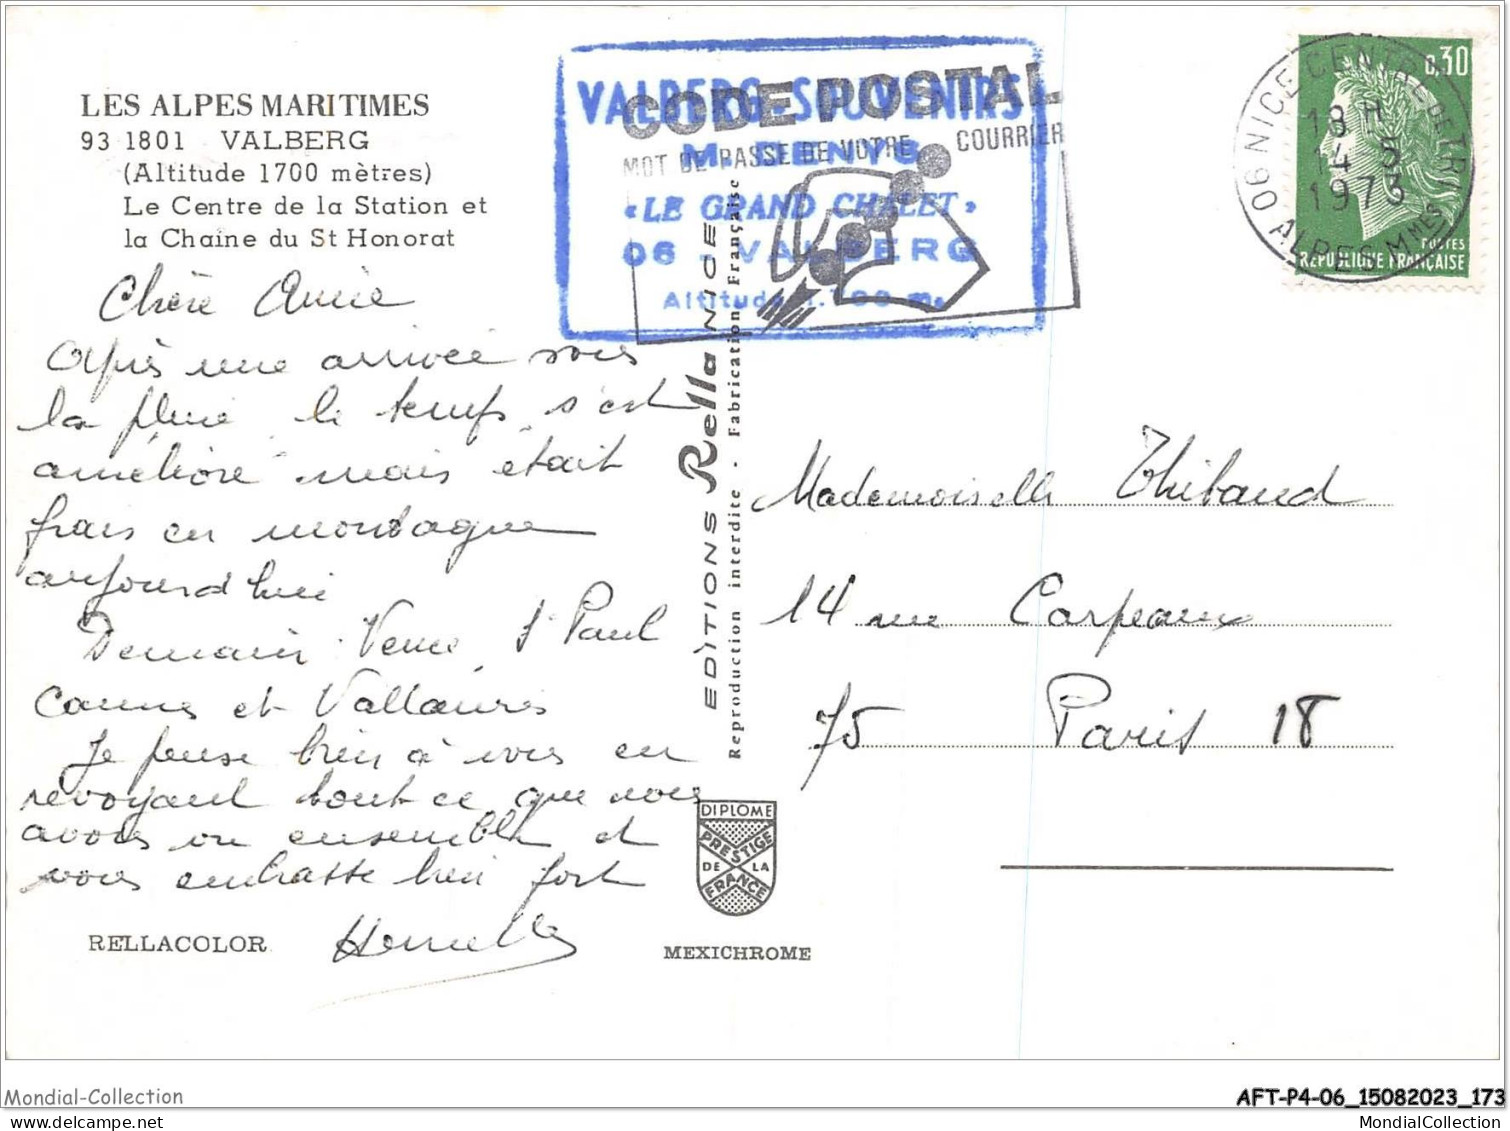 LES ALPES MARITIMES
93 1801 VALBERG
(Altitude 1700 mètres)
Le Centre de la Station et
la Chaine du St Honorat
Chère Annie
Après une arrivée sous
la pluie le temps s'est
amélioré mais était
frais en montagne
aujourd'hui
Demain Vence St Paul
Cannes et Vallauris
Je pense bien à vous en
revoyant tout ce que nous
avons vu ensemble et
vous embrasse bien fort
RELLACOLOR
VALBERG-SOUVENIRS
M. DENYS
«LE GRAND CHALET»
06 - VALBERG
Altitude 1.700 m.
CODE POSTAL
MOT DE PASSE DE VOTRE COURRIER
EDITIONS Rella NICE
Reproduction interdite - Fabrication Française
DIPLOME
PRESTIGE
DE LA
FRANCE
MEXICHROME
0,30
POSTES
REPUBLIQUE FRANÇAISE
06 NICE CENTRAL DE TRI
18 H
14 5
1973
ALPES-MMES
Mademoiselle Thibaud
14 rue Carpeaux
75 Paris 18
Mondial-Collection
AFT-P4-06_15082023_173
MondialCollection